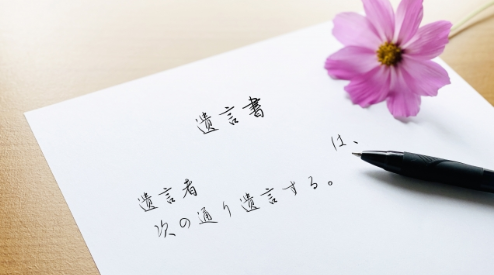 遺言書
遺言者　　　　は、
次の通り遺言する。